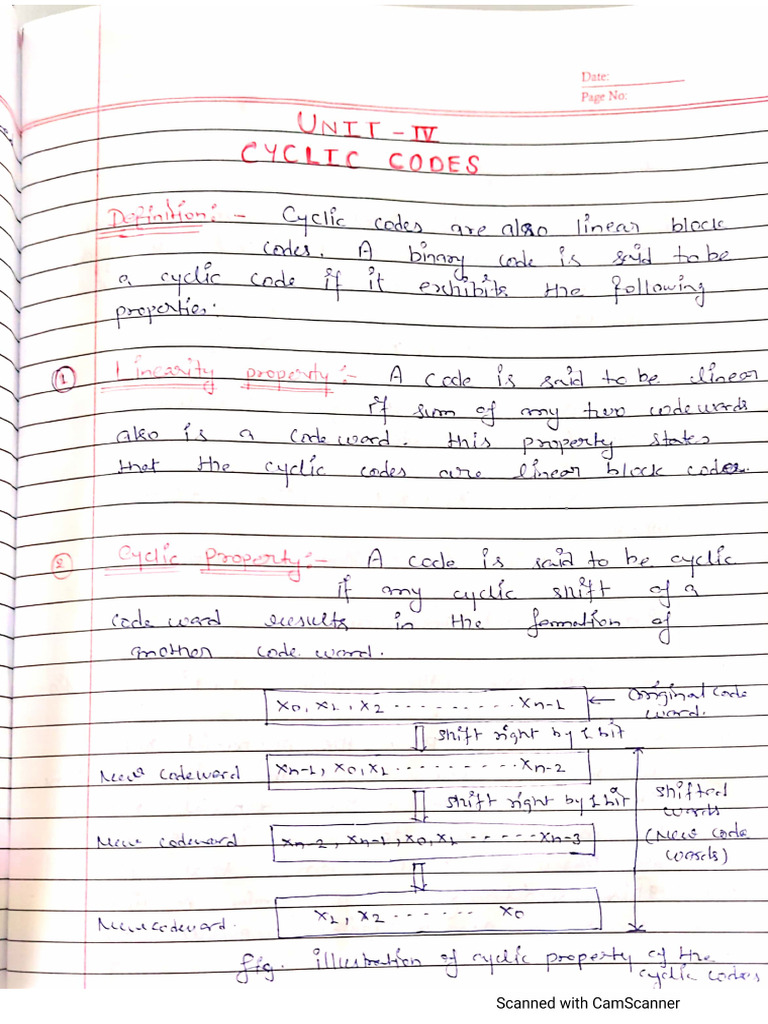 Date:
Page No:
UNIT - IV
CYCLIC CODES
Definition:- Cyclic codes are also linear block
codes. A binary code is said to be
a cyclic code if it exhibits the following
properties.
① Linearity property:- A code is said to be linear
if sum of any two codewords
also is a code word. this property states
that the cyclic codes are linear block codes.
② Cyclic Property:- A code is said to be cyclic
if any cyclic shift of a
code word results in the formation of
another code word.
x0, x1, x2 .......... xn-1 ← original code
word.
shift right by 1 bit
New codeword xn-1, x0, x1 .......... xn-2
shift right by 1 bit
shifted
words
(New code
words)
New codeword xn-2, xn-1, x0, x1 ...... xn-3
New codeword. x1, x2 ....... x0
fig. illustration of cyclic property of the
cyclic codes
Scanned with CamScanner